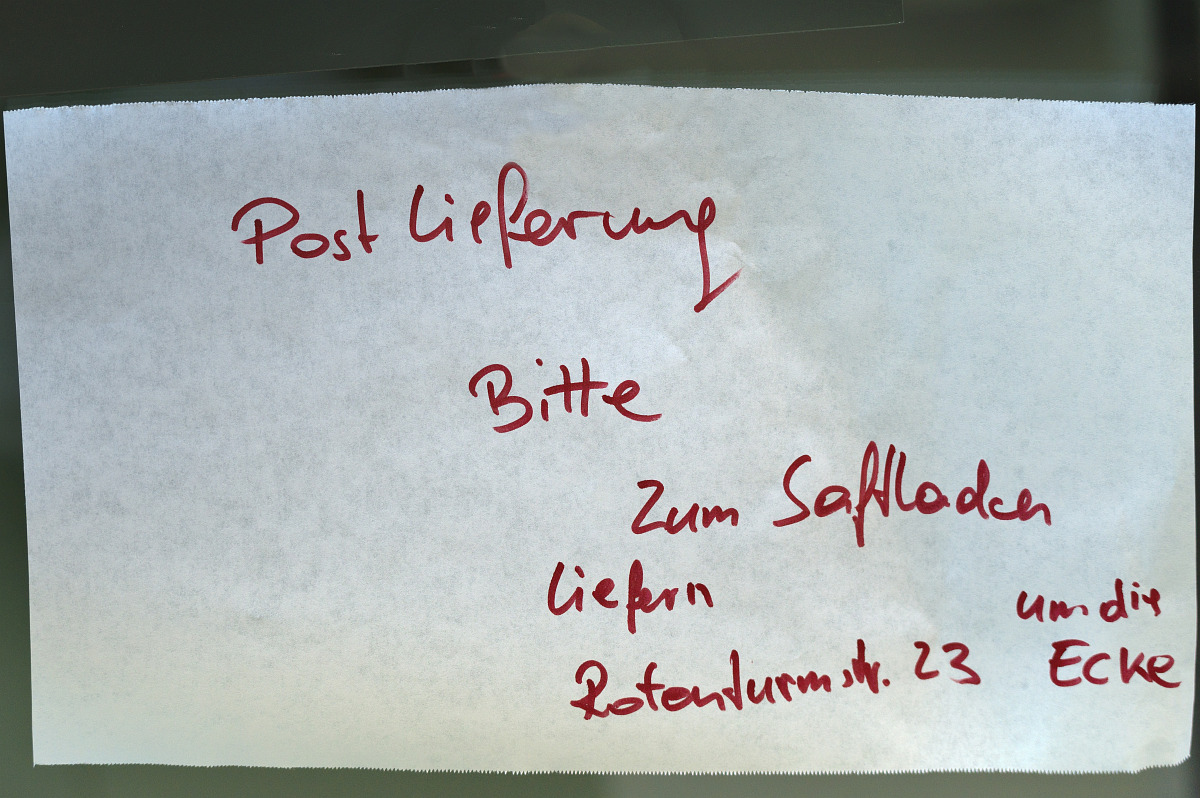 Post Lieferung
Bitte
zum Saftladen
liefern
um die
Rotenturmstr. 23 Ecke